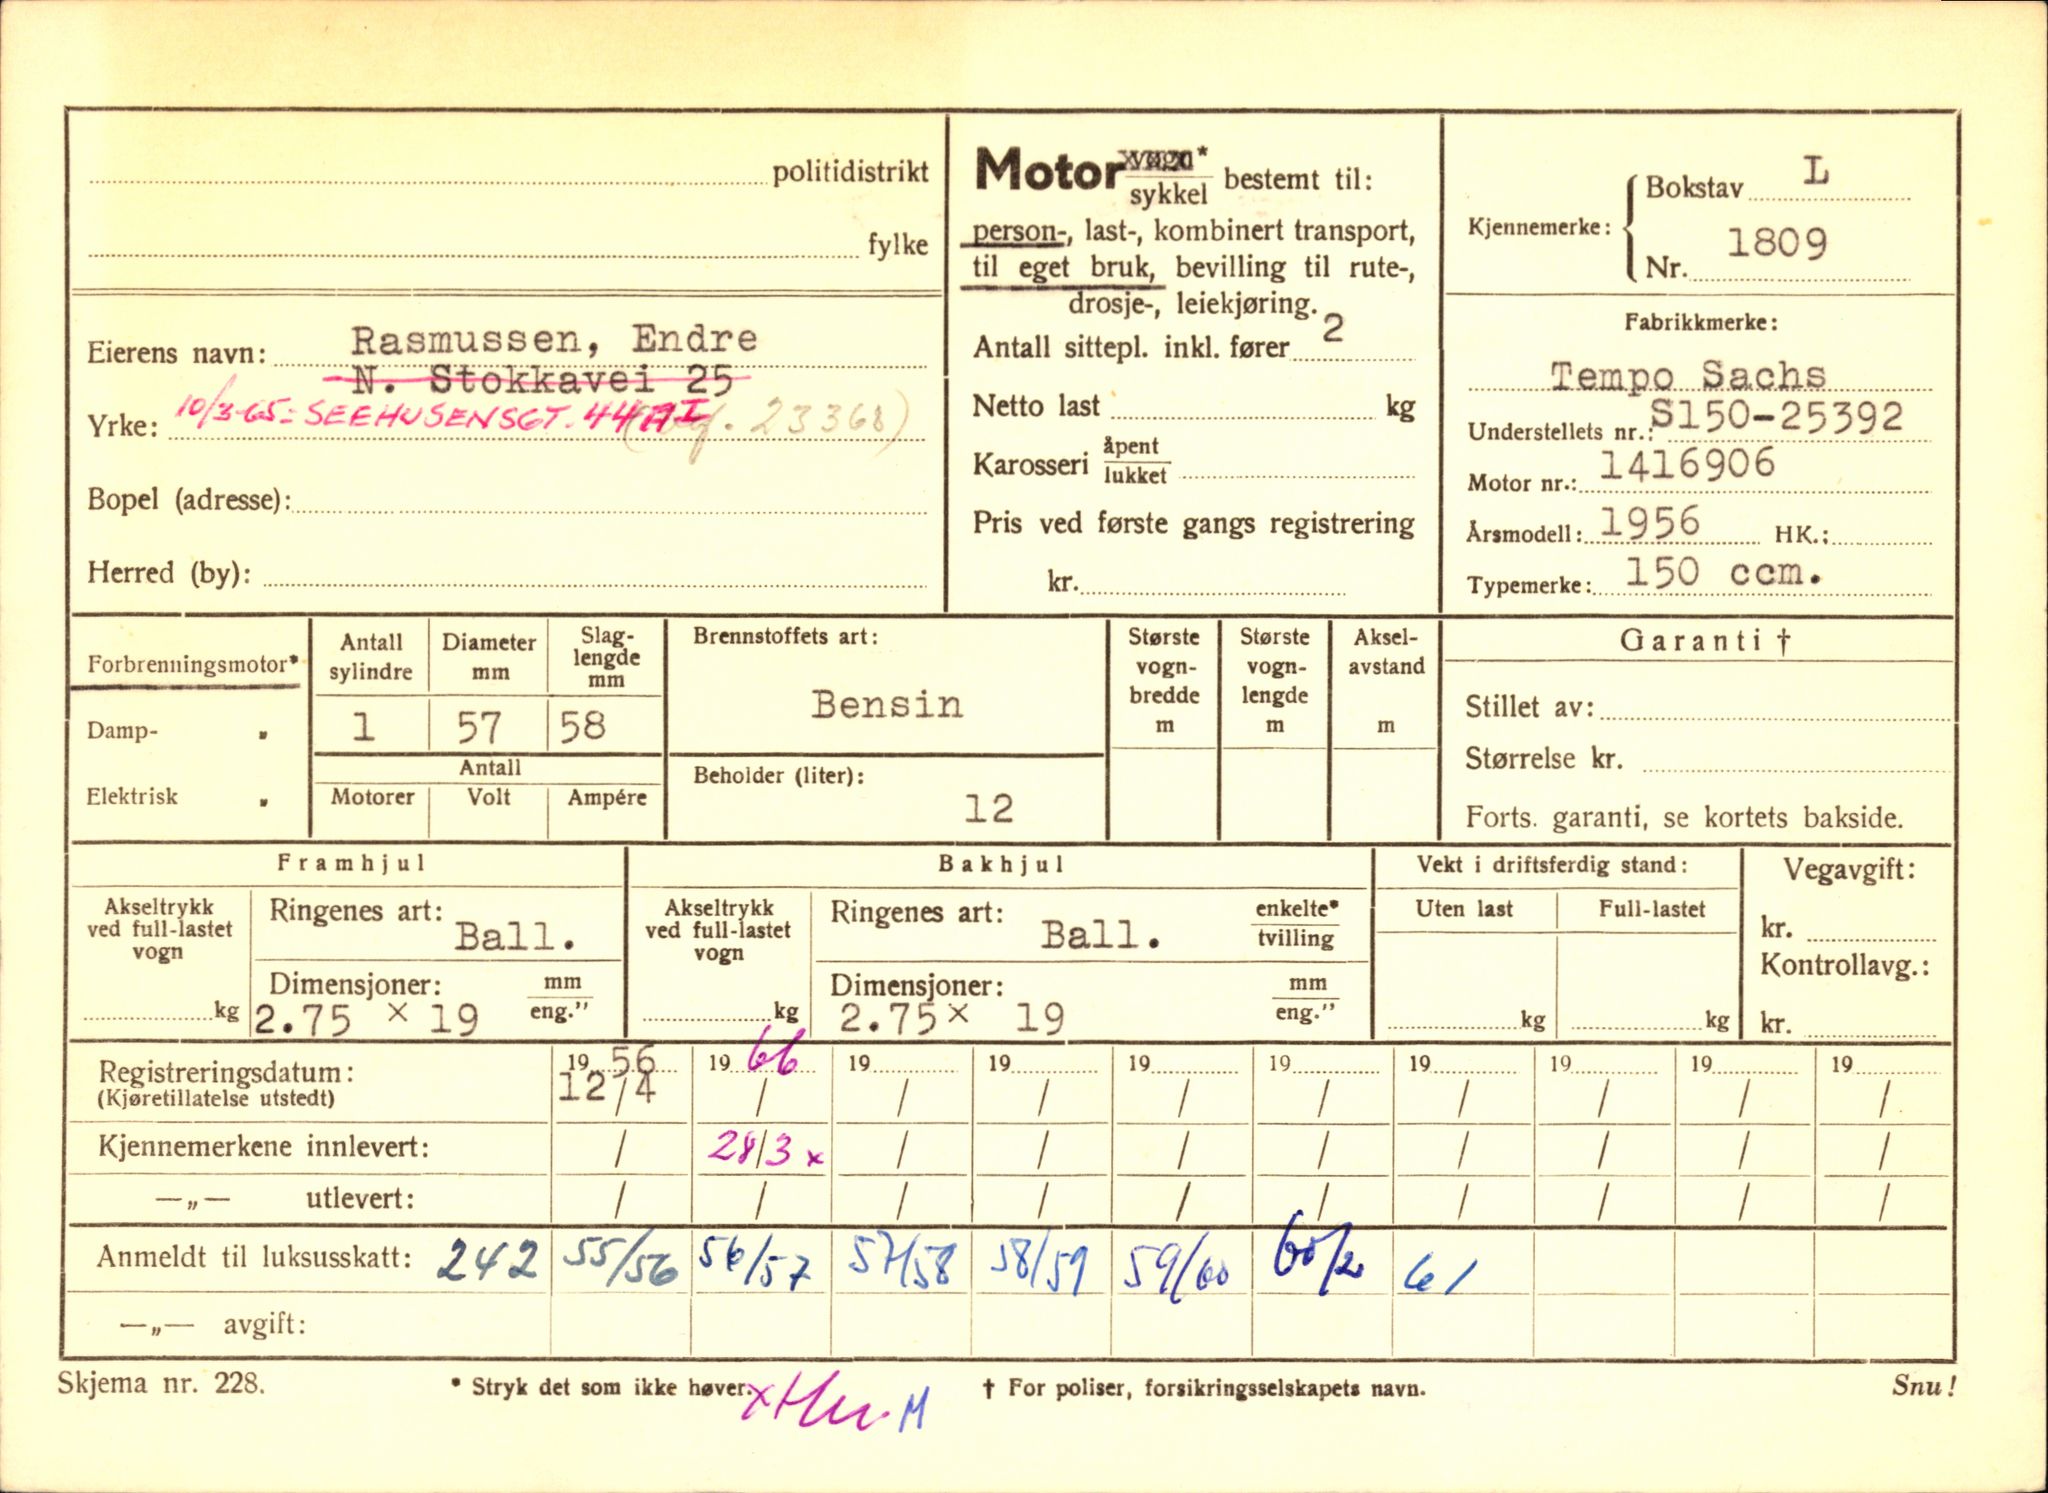 politidistrikt
fylke
Eierens navn: Rasmussen, Endre
N. Stokkavei 25
Yrke: 10/3-65 = SEEHUSENSGT. 44 23368)
Bopel (adresse):
Herred (by):
Motor vogn* / sykkel bestemt til:
person-, last-, kombinert transport,
til eget bruk, bevilling til rute-,
drosje-, leiekjøring.
Antall sittepl. inkl. fører 2
Netto last kg
Karosseri åpent / lukket
Pris ved første gangs registrering
kr.
Kjennemerke: { Bokstav L
Nr. 1809
Fabrikkmerke:
Tempo Sachs
Understellets nr.: S150-25392
Motor nr.: 1416906
Årsmodell: 1956 HK.:
Typemerke: 150 ccm.
Forbrenningsmotor*
Damp- "
Elektrisk "
Antall sylindre
Diameter mm
Slag-lengde mm
1 57 58
Antall
Motorer Volt Ampére
Brennstoffets art:
Bensin
Beholder (liter):
12
Største vogn-bredde m
Største vogn-lengde m
Aksel-avstand m
Garanti †
Stillet av:
Størrelse kr.
Forts. garanti, se kortets bakside.
Framhjul
Akseltrykk ved full-lastet vogn
kg
Ringenes art: Ball.
Dimensjoner: mm / eng."
2.75 × 19
Bakhjul
Akseltrykk ved full-lastet vogn
kg
Ringenes art: Ball. enkelte* / tvilling
Dimensjoner: mm / eng."
2.75 × 19
Vekt i driftsferdig stand:
Uten last Full-lastet
kg kg
Vegavgift:
kr.
Kontrollavg.:
kr.
Registreringsdatum: 19 56 19 66 19 19 19 19 19 19 19 19
(Kjøretillatelse utstedt) 12/4 / / / / / / / / /
Kjennemerkene innlevert: / 28/3 x / / / / / / / /
—„— utlevert: / / / / / / / / / /
Anmeldt til luksusskatt: 242 55/56 56/57 57/58 58/59 59/60 60/2 61
—„— avgift:
Skjema nr. 228.
* Stryk det som ikke høver.
x M
† For poliser, forsikringsselskapets navn.
Snu!